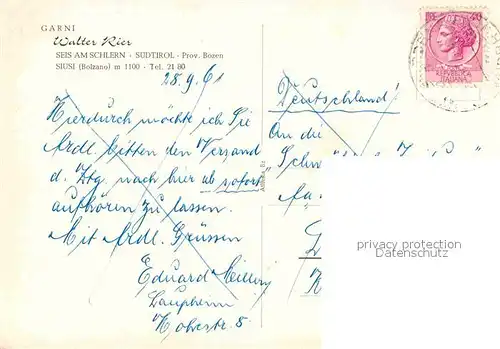 GARNI
Walter Rier
SEIS AM SCHLERN - SÜDTIROL - Prov. Bozen
SIUSI (Bolzano) m 1100 - Tel. 21 80
28.9.61
Hierdurch möchte ich Sie
frdl. bitten den Versand
d. Ztg. nach hier ab sofort
aufhören zu lassen.
Mit frdl. Grüssen
Eduard
Laupheim
Deutschland!
An die
privacy protection
Datenschutz